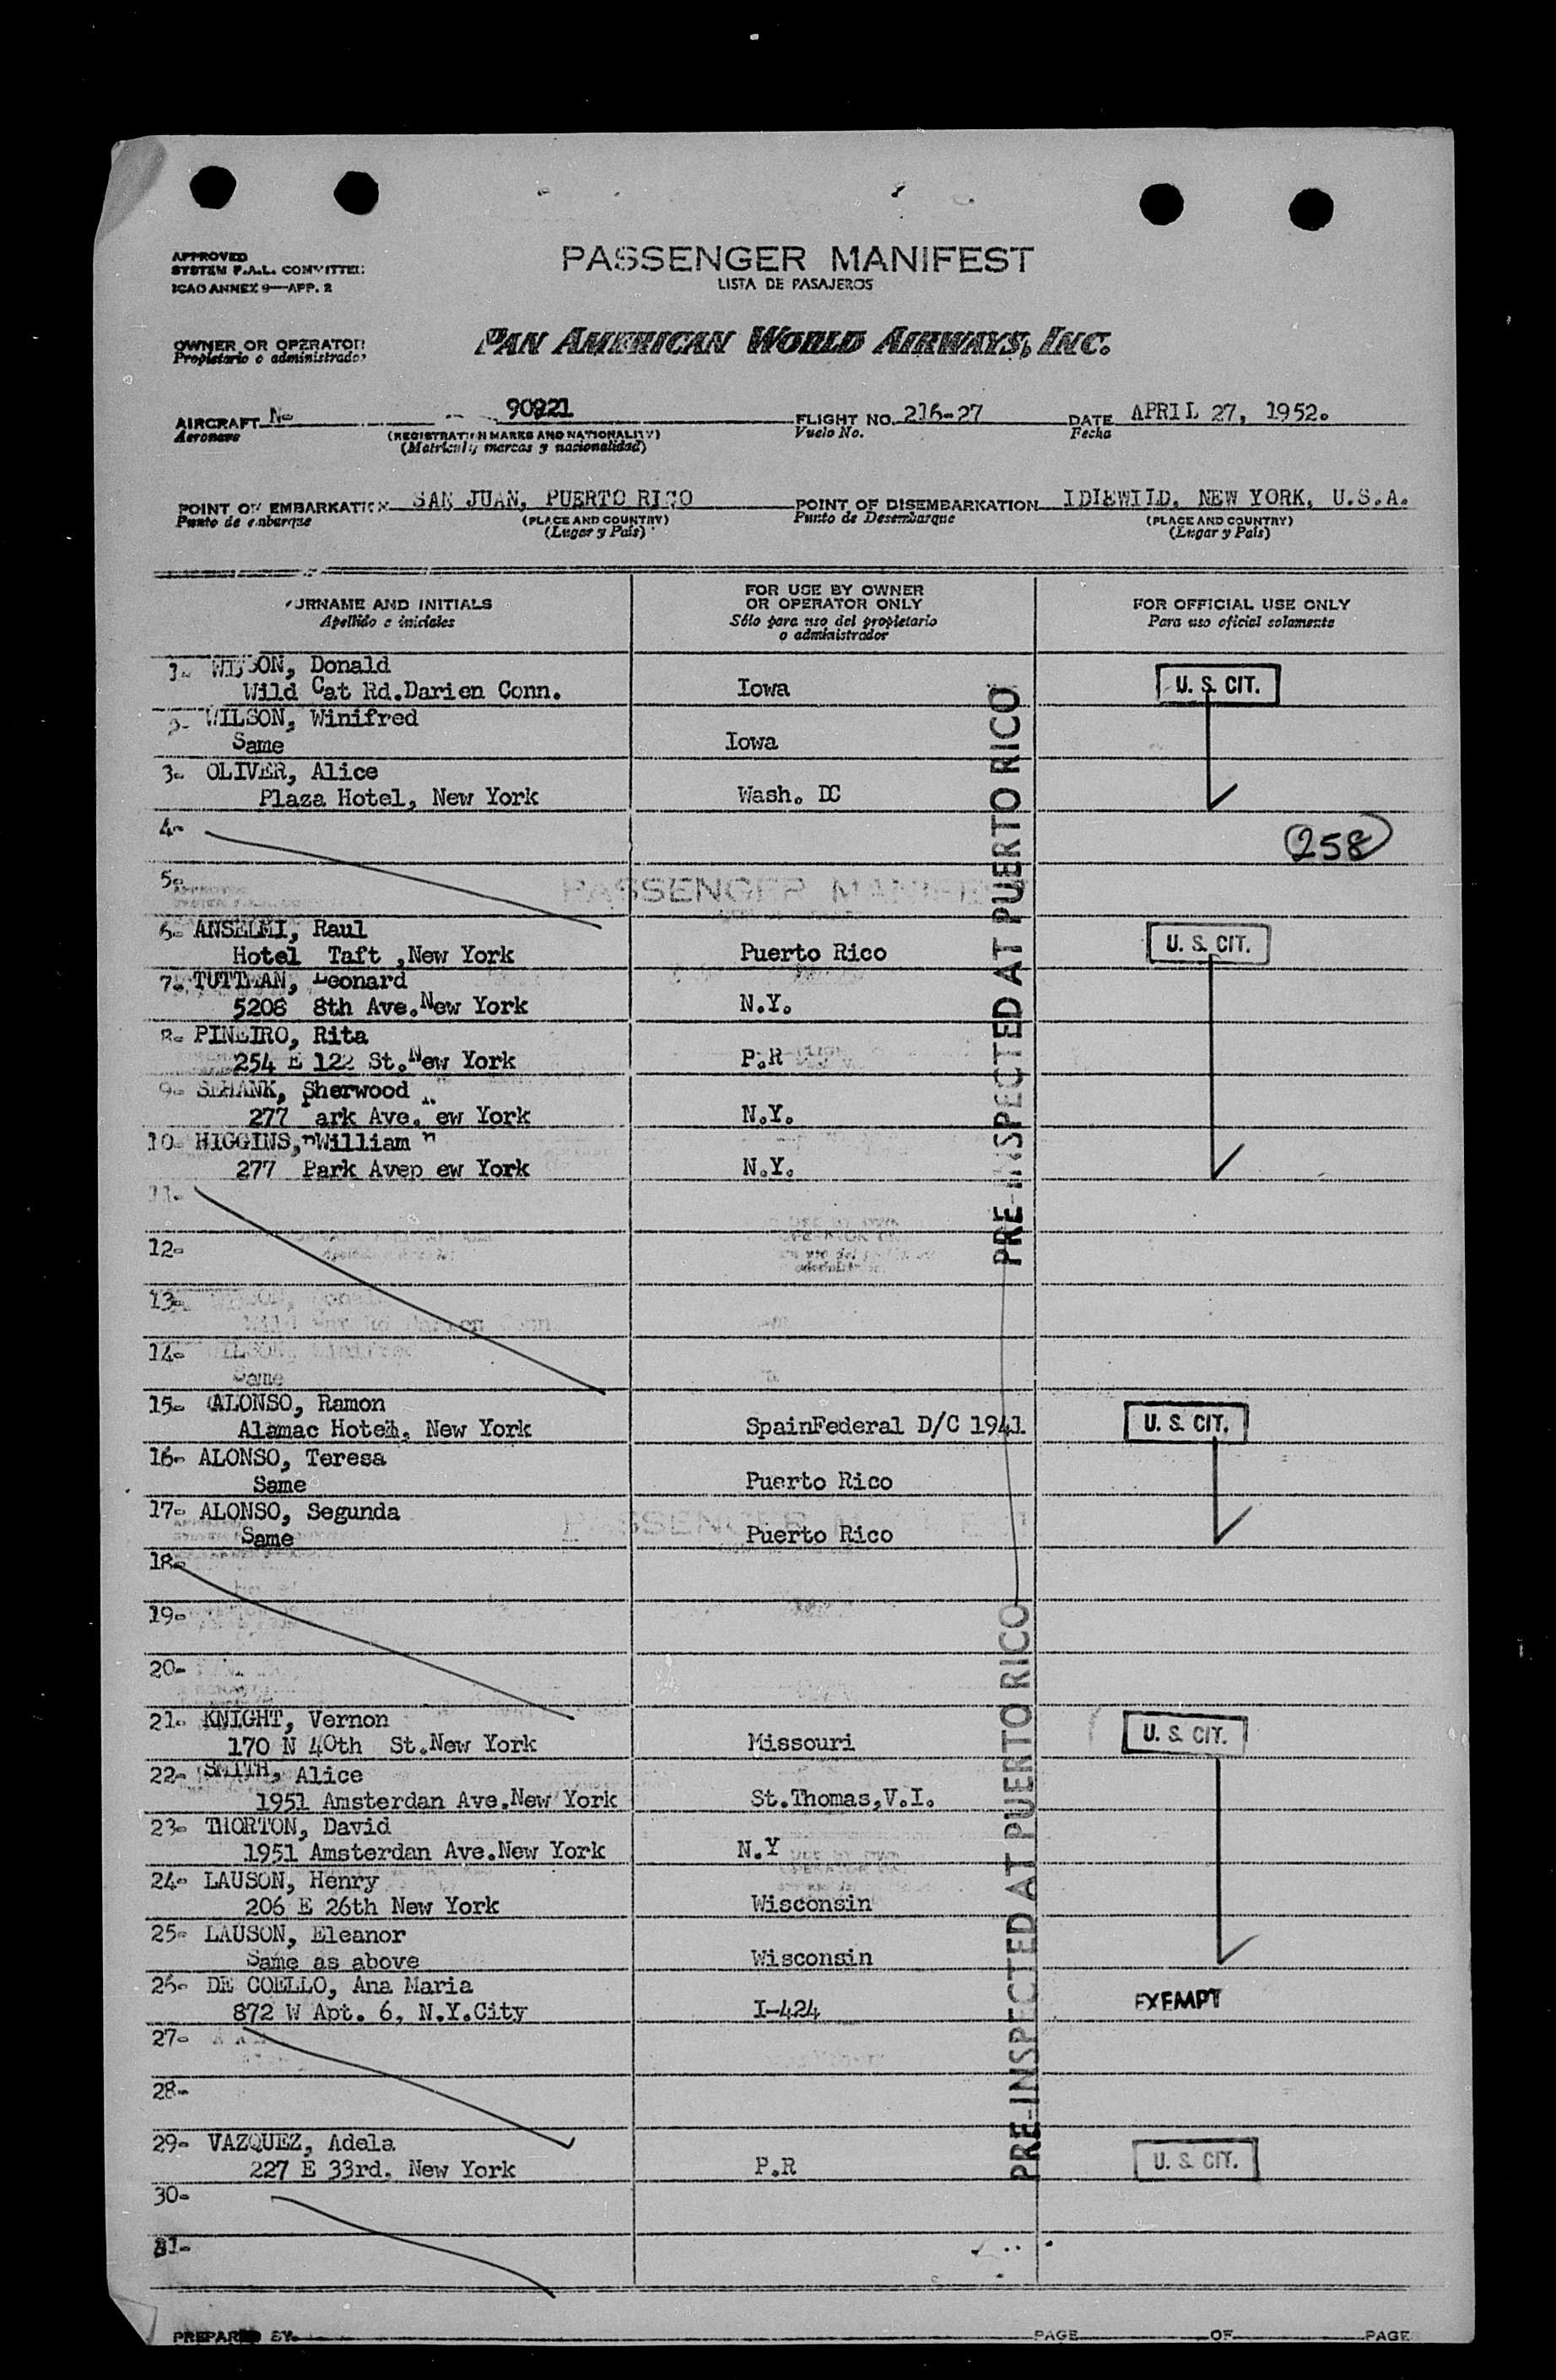 APPROVED
SYSTEM F.A.L. COMMITTEE
ICAO ANNEX 9—APP. 2
PASSENGER MANIFEST
LISTA DE PASAJEROS
OWNER OR OPERATOR
Propietario o administrador
PAN AMERICAN WORLD AIRWAYS, INC.
AIRCRAFT N- 90921 FLIGHT NO. 216-27 DATE APRIL 27, 1952.
Aeronave (REGISTRATION MARKS AND NATIONALITY) Vuelo No. Fecha
(Matricula, marcas y nacionalidad)
POINT OF EMBARKATION SAN JUAN, PUERTO RICO POINT OF DISEMBARKATION IDIEWILD, NEW YORK, U.S.A.
Punto de embarque (PLACE AND COUNTRY) Punto de Desembarque (PLACE AND COUNTRY)
(Lugar y País) (Lugar y País)
SURNAME AND INITIALS
Apellido e iniciales
FOR USE BY OWNER
OR OPERATOR ONLY
Sólo para uso del propietario
o administrador
FOR OFFICIAL USE ONLY
Para uso oficial solamente
1- WILSON, Donald
Wild Cat Rd.Darien Conn. Iowa U. S. CIT.
2- WILSON, Winifred
Same Iowa
3- OLIVER, Alice
Plaza Hotel, New York Wash. DC
4-
258
5-
6- ANSELMI, Raul
Hotel Taft ,New York Puerto Rico U. S. CIT.
7- TUTTMAN, Leonard
5208 8th Ave.New York N.Y.
8- PINEIRO, Rita
254 E 122 St.New York P.R
9- SCHANK, Sherwood
277 Park Ave. ew York N.Y.
10- HIGGINS, William
277 Park Avep ew York N.Y.
11-
12-
13-
14-
15- ALONSO, Ramon
Alamac Hotel, New York SpainFederal D/C 1941 U. S. CIT.
16- ALONSO, Teresa
Same Puerto Rico
17- ALONSO, Segunda
Same Puerto Rico
18-
19-
20-
21- KNIGHT, Vernon
170 N 40th St.New York Missouri U. S. CIT.
22- SMITH, Alice
1951 Amsterdan Ave.New York St.Thomas,V.I.
23- THORTON, David
1951 Amsterdan Ave.New York N.Y
24- LAUSON, Henry
206 E 26th New York Wisconsin
25- LAUSON, Eleanor
Same as above Wisconsin
26- DE COELLO, Ana Maria
872 W Apt. 6, N.Y.City I-424 EXEMPT
27-
28-
29- VAZQUEZ, Adela
227 E 33rd. New York P.R U. S. CIT.
30-
31-
PRE-INSPECTED AT PUERTO RICO
PRE-INSPECTED AT PUERTO RICO
PREPARED BY PAGE OF PAGE